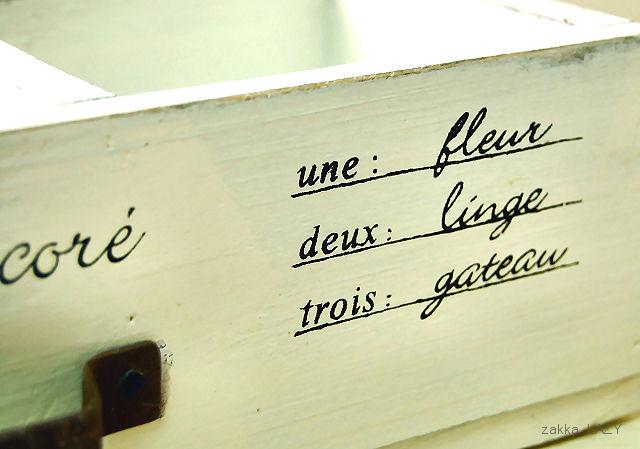 coré
une : fleur
deux : linge
trois : gateau
zakka